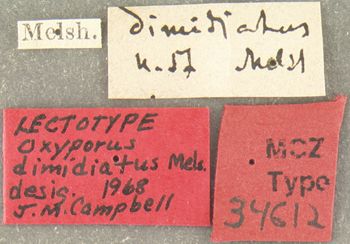 Melsh.
dimidiatus
n. 57 Melsh
LECTOTYPE
Oxyporus
dimidiatus Mels.
desig. 1968
J.M. Campbell
MCZ
Type
34612